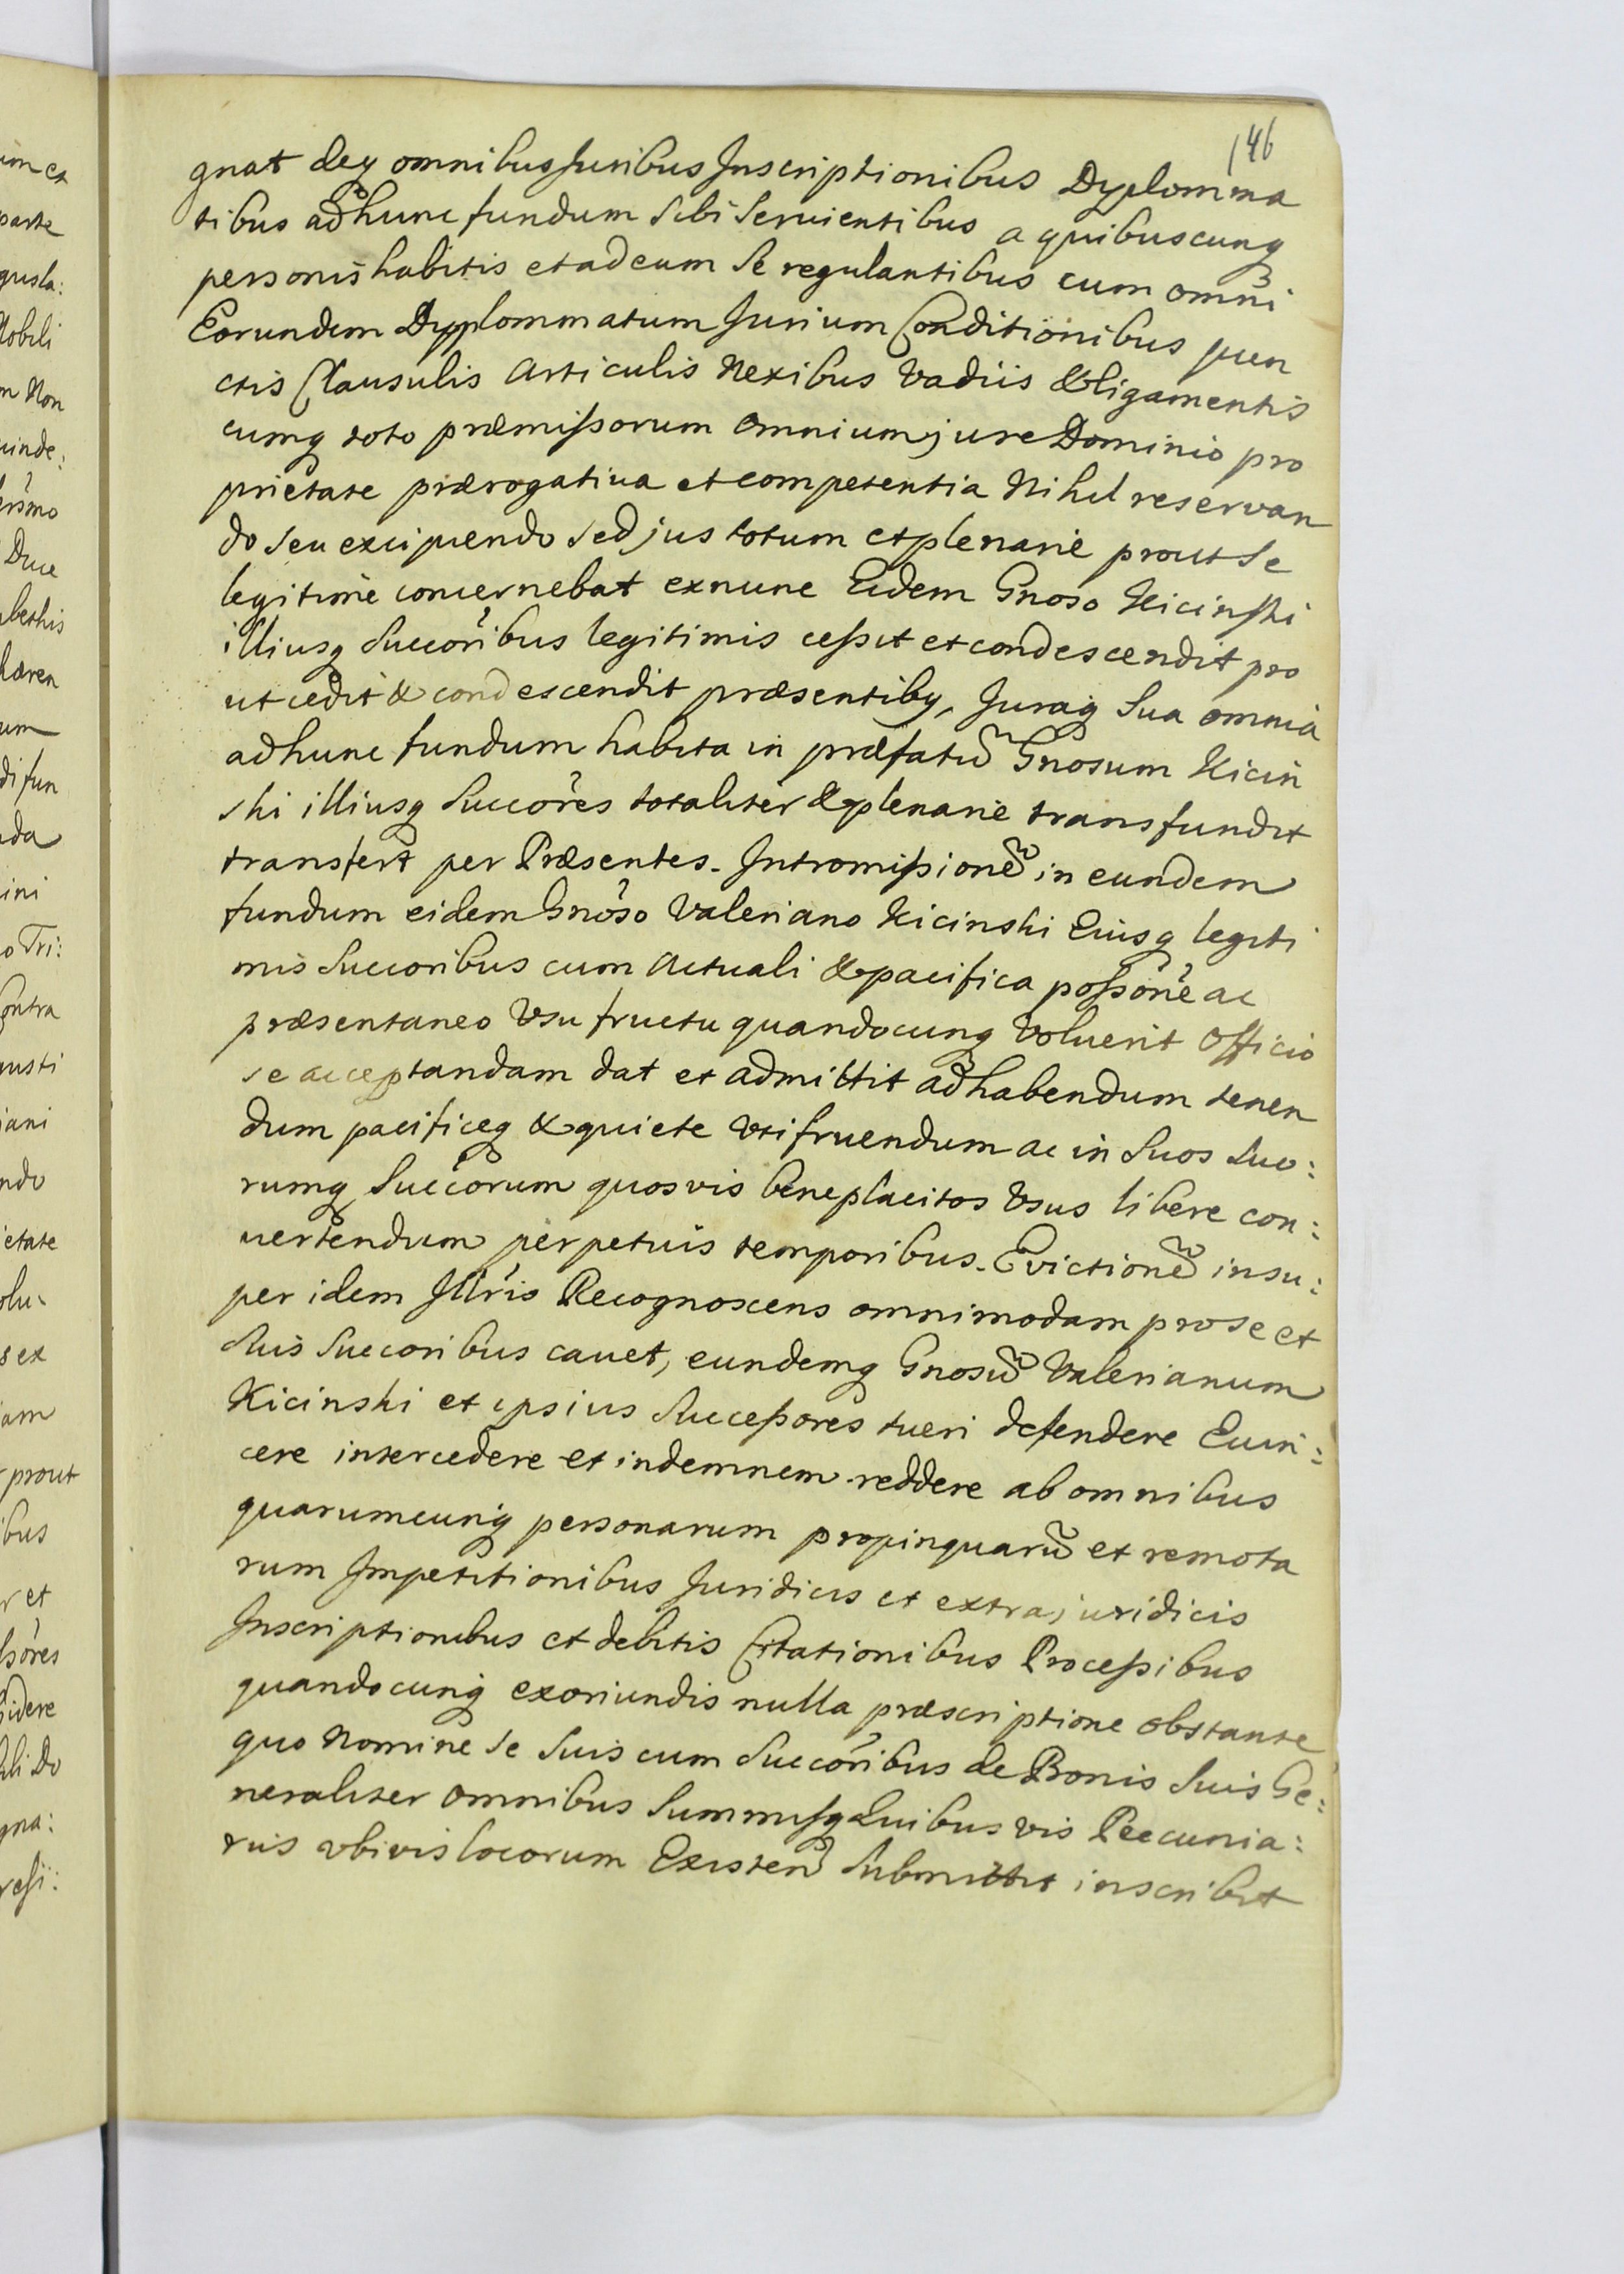 146
gnat deq omnibus Juribus Inscriptionibus Dyplomma
tibus ad hunc fundum Sibi Seruientibus a quibuscunq
personis habitis et ad eum Se regulantibus cum omni
Eorundem Dypplommatum Jurium Conditionibus pun
ctis Clausulis Articulis Nexibus Vadiis Obligamentis
cumq toto præmissorum Omnium jure Dominio pro
prietate prærogatiua et competentia Nihil reservan
do seu excipiendo Sed jus totum et plenarie prout Se
legitime concernebat exnunc Eidem Gnoso Kicinski
illiusq Succoribus legitimis cessit et condescendit pro
ut cedit & condescendit præsentibq, Juraq Sua omnia
ad hunc fundum habita in præfatũ Gnosum Kicin
ski illiusq Succores totaliter & plenarie transfundit
transfert per Præsentes. Intromissionẽ in eundem
fundum eidem Gnoso Valeriano Kicinski Eiusq legiti
mis Succoribus cum Actuali & pacifica possone ac
præsentaneo Vsu fructu quandocunq Voluerit Officio
se acceptandam dat et admittit ad habendum tenen
dum pacificeq & quiete Vtifruendum ac in Suos Suo:
rumq Succorum quosvis beneplacitos Vsus libere con:
uertendum perpetuis temporibus. Evictionẽ insu:
per idem Illris Recognoscens omnimodam pro se et
Suis Succoribus cauet, eundemq Gnosũ Valerianum
Kicinski et ipsius Successores tueri defendere Euin:
cere intercedere et indemnem reddere ab omnibus
quarumcunq personarum propinquarũ et remota
rum Impetitionibus Juridicis et extrajuridicis
Inscriptionibus et debitis Citationibus Processibus
quandocunq exoriundis nulla præscriptione obstante
quo Nomine Se Suis cum Succoribus de Bonis Suis Ge:
neraliter Omnibus Summisq Quibusvis Pecunia:
riis vbivis locorum Existen Submittit inscribit
im et
parte
gusla:
Nobili
m Non
uinde:
Duce
um
di fun
ini
o Tri:
Contra
usti
iani
ndo
ietate
olu
s ex
iam
prout
ibus
r et
idere
gna: